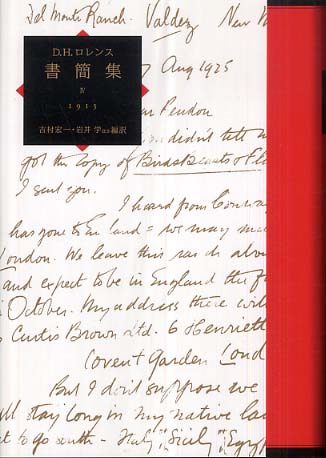 Del Monte Ranch. Valdez New M
7 Aug 1925
D.H.ロレンス
書簡集
Ⅳ
1913
吉村宏一・岩井学ほか編訳
ar Pendon
didn't tell m
got the copy of Birds Beasts & Fl
I sent you.
I heard from Conway
has gone to England = we may
London. We leave this ranch
and expect to be in England the f
October. My address there will
Curtis Brown Ltd. 6 Henriett
Covent Garden Lond
But I don't suppose we
ll stay long in my native la
t to go south – Italy, Sicily, Egyp